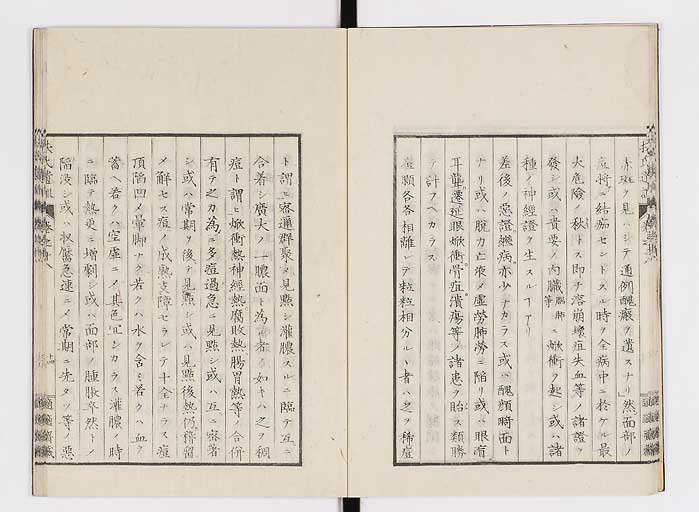 赤斑ヲ見ハシテ通例醜瘢ヲ遺スナリ然面部ノ
痘將ニ結痂セントスル時ヲ全病中ニ於ケル最
大危險ノ秋トス即チ落崩壞疽失血等ノ諸證ヲ
發シ或ハ貴要ノ内臓腦肺等ニ焮衝ヲ起シ或ハ諸
種ノ神經證ヲ生スルヿアリ
差後ノ惡證繼病亦少ナカラス或ハ醜顏時面ト
ナリ或ハ脫力亡液メ虚勞肺勞ニ陷リ或ハ眼盲
耳聾遷延眼焮衝骨疽潰瘍等ノ諸患ヲ貽ス類勝
テ計フヘカラス
痘顆各各相離レテ粒粒相分ルヽ者ハ之ヲ稀痘
ト謂ヒ密邇群聚メ見點シ灌膿スルニ臨テ互ニ
合着シ廣大ノ一膿面ト為ル者ノ如キハ之ヲ稠
痘ト謂ヒ焮衝熱神經熱腐敗熱腸胃熱等ノ合併
有テ之カ為ニ多痘過急ニ見點シ或ハ互ニ密着
シ或ハ常期ヲ後テ見點シ或ハ見點後熱仍稽留
メ解セス痘ノ成熟支障セラレテ十全ナラス痘
頂陷凹メ暈脚ナク若クハ水ヲ含ミ若クハ血ヲ
蓄ヘ若クハ空虚ニメ其色宜シカラス灌膿ノ時
ニ臨テ熱更ニ增劇シ或ハ面部ノ腫脹卒然トメ
陷没シ或ハ収靨急速ニメ常期ニ先タツ等ノ惡